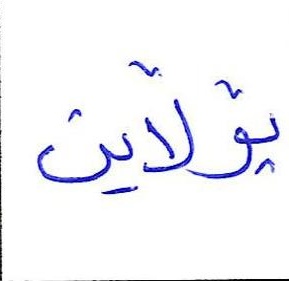 پۆڵاین